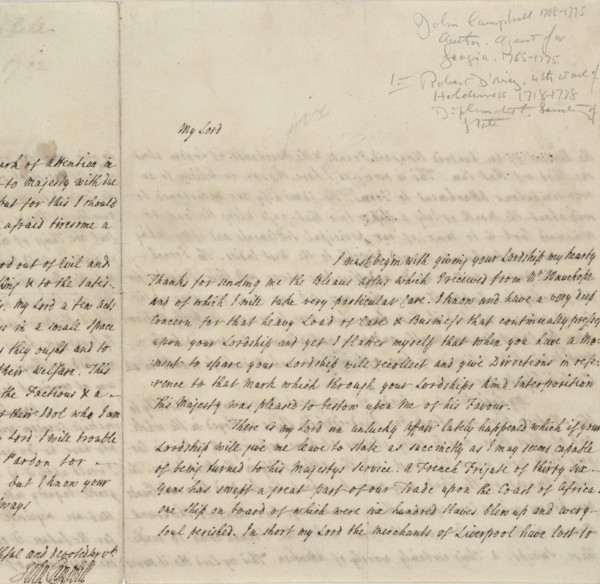 John Campbell 1708-1775
Author. Agent for
Georgia. 1765-1775
to Robert D'Arcy, 4th Earl of
Holderness 1718-1778
Diplomatist, Secretary of
State
ark of attention in
to Majesty with due
but for this I should
afraid tiresome a
rd out of Evil and
King & to the
My Lord a few acts
in a small space
as they ought and to
their Welfare. This
the Factious & a
their Idol who I am
Lord I will trouble
Pardon for
but I know your
lways
thful and devoted Svt.
John Campbell
My Lord
I must begin with giving your Lordship my hearty
Thanks for sending me the Bleaus atlas which I received from Mr.
and of which I will take very particular Care. I know and have a very deep
Concern for that heavy Load of Care & Business that continually presses
upon your Lordship and yet I flatter myself that when you have a Mo-
ment to spare your Lordship will recollect and give Directions in refe-
rence to that Mark which through your Lordships kind Interposition
His Majesty was pleased to bestow upon Me of his Favour.
There is my Lord an unlucky affair lately happened which if your
Lordship will give me leave to state as succinctly as I may seems capable
of being turned to his Majestys service. A French Frigate of thirty six
Guns has swept a great part of our Trade upon the Coast of Africa.
One Ship on board of which were six hundred Slaves blew up and every
soul perished. In short my Lord the Merchants of Liverpool have lost to